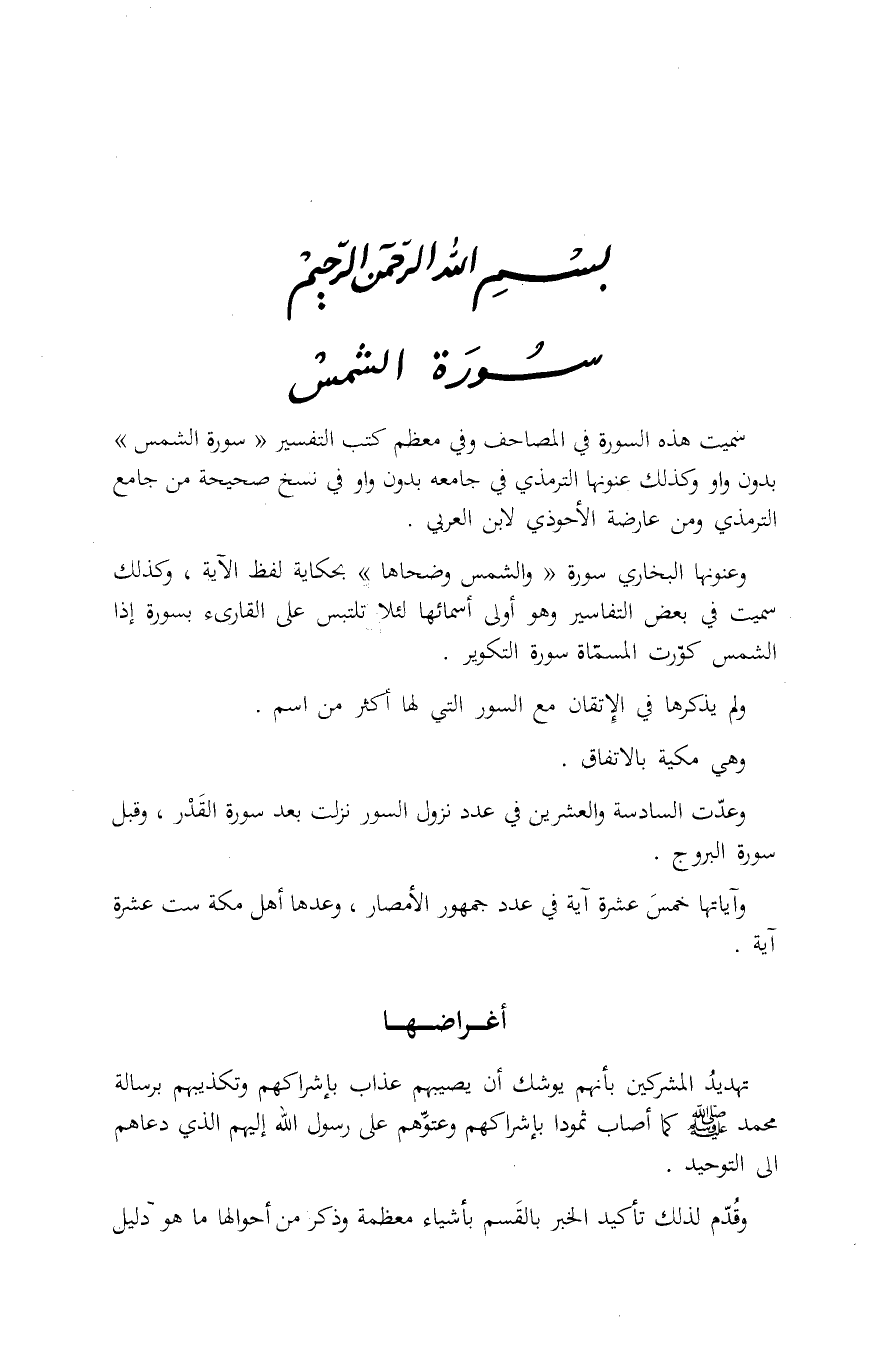 بسم الله الرحمن الرحيم
سورة الشمس
سميت هذه السورة في المصاحف وفي معظم كتب التفسير « سورة الشمس »
بدون واو وكذلك عنونها الترمذي في جامعه بدون واو في نسخ صحيحة من جامع
الترمذي ومن عارضة الأحوذي لابن العربي .
وعنونها البخاري سورة « والشمس وضحاها » بحكاية لفظ الآية ، وكذلك
سميت في بعض التفاسير وهو أولى أسمائها لئلا تلتبس على القارىء بسورة إذا
الشمس كوّرت المسمّاة سورة التكوير .
ولم يذكرها في الإتقان مع السور التي لها أكثر من اسم .
وهي مكية بالاتفاق .
وعدّت السادسة والعشرين في عدد نزول السور نزلت بعد سورة القَدْر ، وقبل
سورة البروج .
وآياتها خمسَ عشرة آية في عدد جمهور الأمصار ، وعدها أهل مكة ست عشرة
آية .
أغـراضـهـا
تهديدُ المشركين بأنهم يوشك أن يصيبهم عذاب بإشراكهم وتكذيبهم برسالة
محمد ﷺ كما أصاب ثمودا بإشراكهم وعتوّهم على رسول الله إليهم الذي دعاهم
الى التوحيد .
وقُدّم لذلك تأكيد الخبر بالقَسم بأشياء معظمة وذكر من أحوالها ما هو دليل